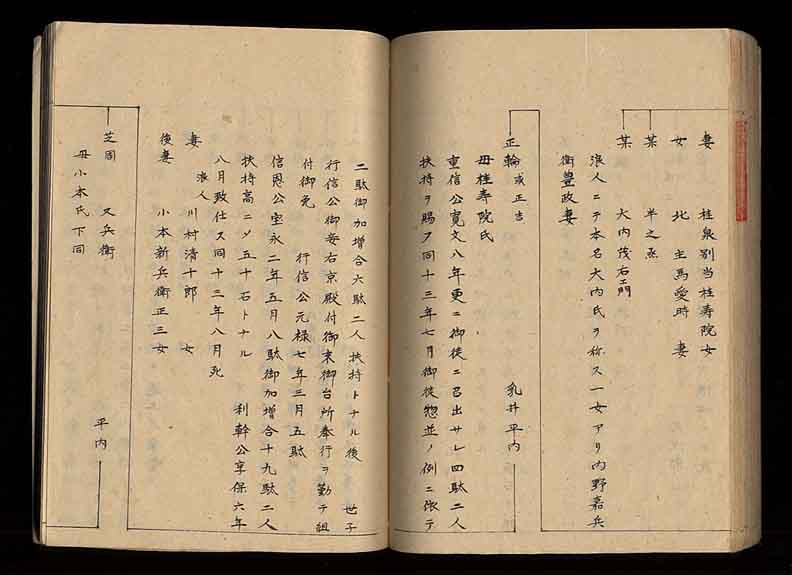 妻　桂泉別当桂寿院女
女　北　主馬愛時　妻
某　半之丞
某　大内茂右エ門
浪人ニテ本名大内氏ヲ称ス一女アリ内野嘉兵
衛豊政妻
正輪 或正吉　乳井平内
母桂寿院氏
重信公寛文八年更ニ御徒ニ召出サレ四駄二人
扶持ヲ賜フ同十三年七月御徒惣並ノ例ニ依テ
二駄御加増合六駄二人扶持トナル後　世子
行信公御妾右京殿付御末御台所奉行ヲ勤テ組
付御免　行信公元禄七年三月五駄
信恩公宝永二年五月八駄御加増合十九駄二人
扶持高ニメ五十石トナル　利幹公享保六年
八月致仕ス同十三年八月死
妻　浪人　川村清十郎　女
後妻　小本新兵衛正三女
芝岡　又兵衛　平内
母小本氏下同